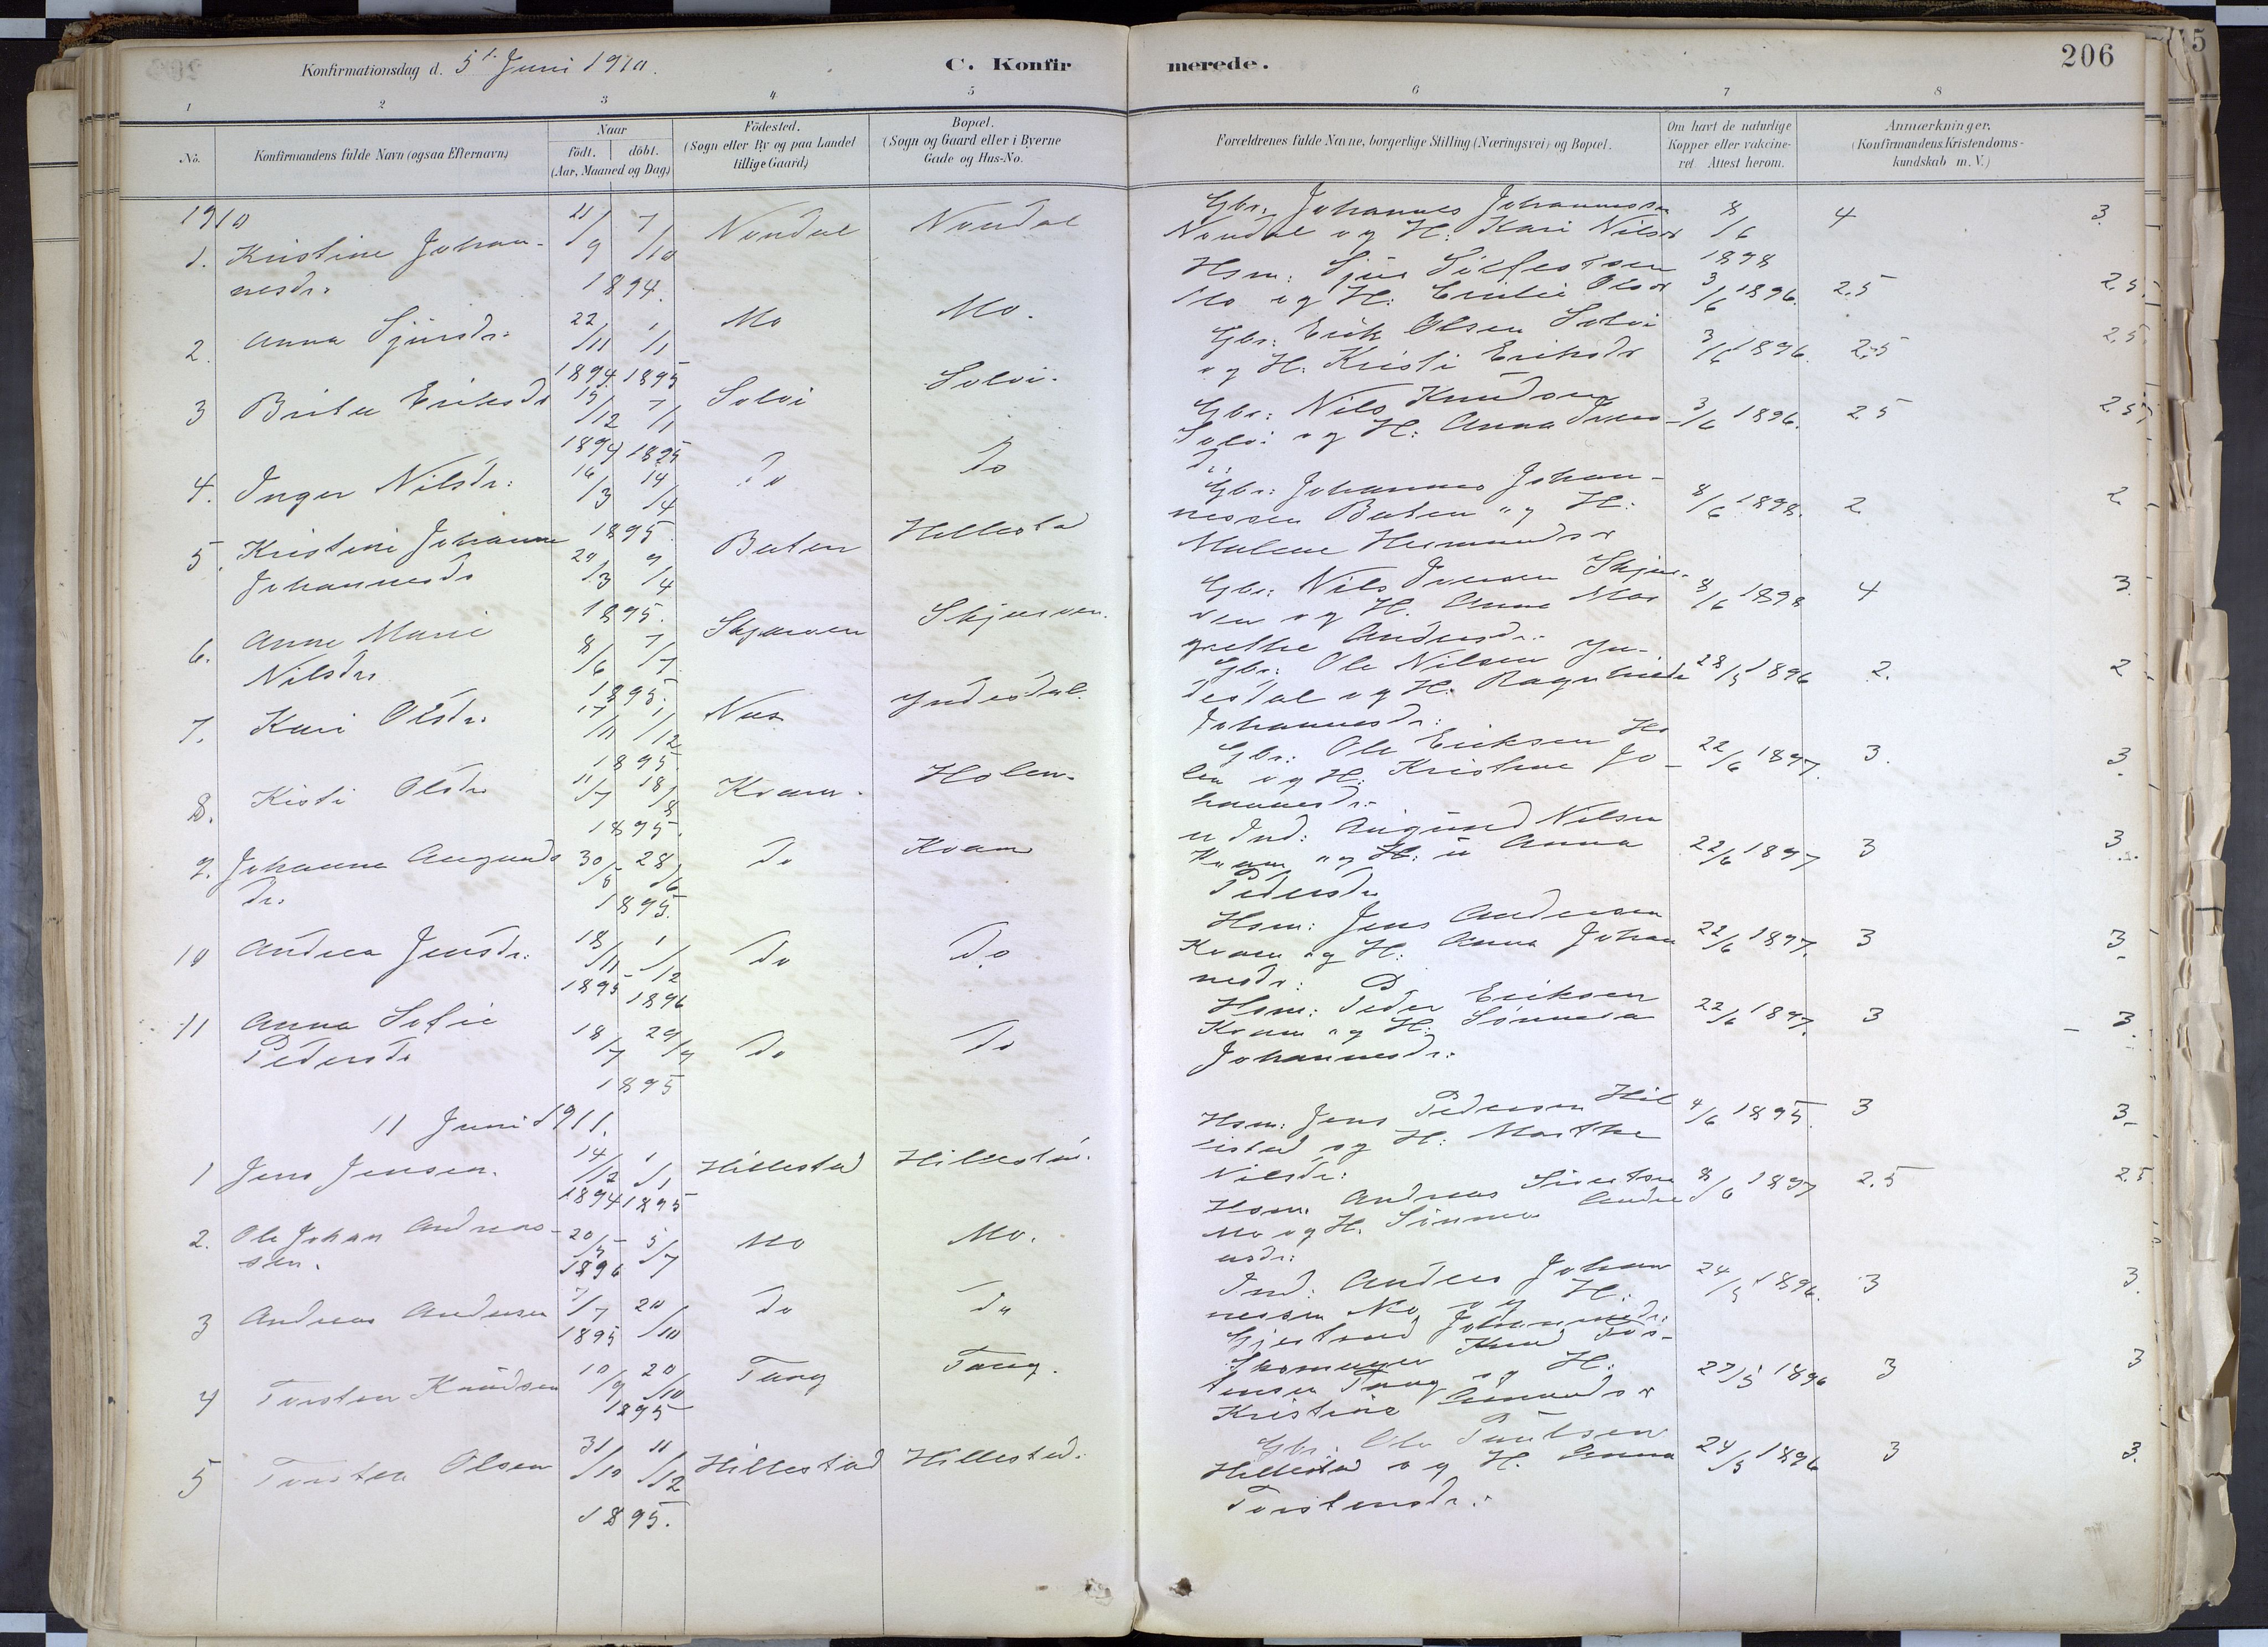 Konfirmationsdag d. 5t Juni 1910.
C. Konfirmerede.
206
1 2 3 4 5 6 7 8
No.
Konfirmandens fulde Navn (ogsaa Efternavn)
Naar
födt. döbt.
(Aar, Maaned og Dag)
Födested.
(Sogn eller By og paa Landet
tillige Gaard)
Bopæl.
(Sogn og Gaard eller i Byerne
Gade og Hus-No.
Forældrenes fulde Navne, borgerlige Stilling (Næringsvei) og Bopæl.
Om havt de naturlige
Kopper eller vakcine-
ret. Attest herom.
Anmærkninger.
(Konfirmandens Kristendoms-
kundskab m. V.)
1910
1. Kristine Johan-
nesdr.
21/9 7/10
1894.
Nondal Nondal
Gbr. Johannes Johannessen
Nondal og H: Kari Nilsdr
8/6
1898
4 3
2. Anna Sjursdr.
22/11 1/1
1894 1895
Mo Mo.
Hsm: Sjur Silfestsen
Mo og H: Emilie Olsdr
3/6 1896. 2.5 2.5
3 Brita Eriksdr
15/12 7/1
1894 1895
Solvi Solvi.
Gbr: Erik Olsen Solvi
og H. Kristi Eriksdr
3/6 1896. 2.5 2.5
4. Inger Nilsdr:
16/3 14/4
1895.
Do Do
Gbr: Nils Knudsen
Solvi og H: Anna Ivers-
dr.
3/6 1896. 2.5 2.5
5. Kristine Johanne
Johannesdr
29/3 9/4
1895.
Buten Hillestad
Gbr: Johannes Johan-
nessen Buten og H:
Malene Hermundsdr
8/6 1898. 2 2
6. Anne Marie
Nilsdr.
8/6 7/7
1895.
Skjerven Skjerven.
Gbr: Nils Iversen Skjer-
ven og H. Anna Mar
grethe Andersdr.
8/6 1898 4 3.
7. Kari Olsdr.
17/11 1/12
1895.
Nes Yndesdal.
Gbr: Ole Nilsen Yn-
desdal og H. Ragnhilda
Johannesdr:
28/5 1896 2. 2
8. Kisti Olsdr
11/7 18/8
1895.
Kvam. Holen.
Gbr: Ole Eriksen Ho
len og H: Kristine Jo-
hannesdr.
22/6 1897. 3. 3.
9. Johanna Augunds
dr.
30/5 28/6
1895.
do Kvam
u Ind: Augund Nilsen
Kvam og H: u Anna
Pedersdr
22/6 1897 3 3.
10 Andrea Jensdr.
18/11 1/12
1895 1896
do Do
Hsm: Jens Andersen
Kvam og H: Anna Johan
nesdr:
22/6 1897. 3 3.
11 Anna Sofie
Pedersdr
18/7 29/9
1895
do do
Hsm: Peder Eriksen
Kvam og H: Sønneva
Johannesdr.
22/6 1897. 3 3.
11 Juni 1911.
1 Jens Jensen.
14/12 1/1
1894 1895
Hillestad Hillestad.
Hsm: Jens Pedersen Hil
lestad og H: Marthe
Nilsdr:
4/6 1895. 3 3.
2. Ole Johan Andreas-
sen.
20/5 5/7
1896
Mo Mo.
Hsm. Andreas Sivertsen
Mo og H. Sønneva Andre
asdr:
8/6 1897 2.5 2.5
3 Andreas Andersen
7/7 20/10
1895
do do
Ind: Anders Johan
nessen Mo og H:
Gjertrud Johannesdr:
24/5 1896. 3 3.
4 Torsten Knudsen
10/9 20/10
1895
Tang Tang.
Skomager Knud Tos-
tensen Tang og H:
Kristine Amundsdr
27/5 1896 3 3
5 Torsten Olsen
31/10 11/12
1895.
Hillestad Hillestad.
Gbr. Ole Paulsen
Hillestad og H. Anna
Torstensdr.
24/5 1896 3 3.